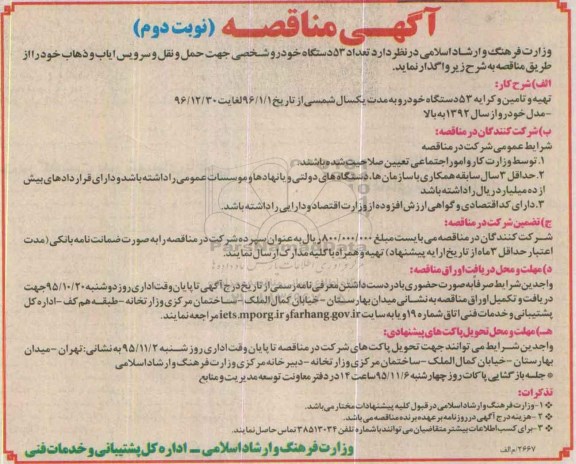 آگهی مناقصه (نوبت دوم)
وزارت فرهنگ و ارشاد اسلامی در نظر دارد تعداد ۵۳ دستگاه خودرو شخصی جهت حمل و نقل و سرویس ایاب و ذهاب خود را از
طریق مناقصه به شرح زیر واگذار نماید.
الف) شرح کار:
تهیه و تامین و کرایه ۵۳ دستگاه خودرو به مدت یکسال شمسی از تاریخ ۹۶/۱/۱ لغایت ۹۶/۱۲/۳۰
-مدل خودرو از سال ۱۳۹۲ به بالا
ب) شرکت کنندگان در مناقصه:
شرایط عمومی شرکت در مناقصه
۱. توسط وزارت کار و امور اجتماعی تعیین صلاحیت شده باشند.
۲. حداقل ۳ سال سابقه همکاری با سازمان ها، دستگاه های دولتی و یا نهادها و موسسات عمومی را داشته باشد و دارای قراردادهای بیش
از ده میلیارد ریال را داشته باشد
۳. دارای کد اقتصادی و گواهی ارزش افزوده از وزارت اقتصاد و دارایی را داشته باشد.
ج) تضمین شرکت در مناقصه:
شرکت کنندگان در مناقصه می بایست مبلغ ۸۰۰/۰۰۰/۰۰۰ ریال به عنوان سپرده شرکت در مناقصه را به صورت ضمانت نامه بانکی (مدت
اعتبار حداقل ۳ ماه از تاریخ ارایه پیشنهاد) تهیه و همراه با کلیه مدارک ارسال نمایند.
د) مهلت و محل دریافت اوراق مناقصه:
واجدین شرایط صرفا به صورت حضوری با در دست داشتن معرفی نامه رسمی از تاریخ درج آگهی تا پایان وقت اداری روز دوشنبه ۹۵/۱۰/۲۰ جهت
دریافت و تکمیل اوراق مناقصه به نشانی میدان بهارستان - خیابان کمال الملک - ساختمان مرکزی وزارتخانه - طبقه هم کف - اداره کل
پشتیبانی و خدمات فنی اتاق شماره ۱۹ و یا به سایت farhang.gov.ir و iets.mporg.ir مراجعه نمایند.
هـ) مهلت و محل تحویل پاکت های پیشنهادی:
واجدین شرایط می توانند جهت تحویل پاکت های شرکت در مناقصه تا پایان وقت اداری روز شنبه ۹۵/۱۱/۲ به نشانی: تهران - میدان
بهارستان - خیابان کمال الملک - ساختمان مرکزی وزارتخانه - دبیرخانه مرکزی وزارت فرهنگ و ارشاد اسلامی
* جلسه بازگشایی پاکات روز چهارشنبه ۹۵/۱۱/۶ ساعت ۱۴ در دفتر معاونت توسعه مدیریت و منابع
تذکرات:
۱- وزارت فرهنگ و ارشاد اسلامی در قبول کلیه پیشنهادات مختار می باشد.
۲- هزینه درج آگهی در روزنامه بر عهده برنده مناقصه می باشد.
۳- برای کسب اطلاعات بیشتر متقاضیان می توانند با شماره تلفن ۳۸۵۱۳۰۳۴ تماس حاصل نمایند.
وزارت فرهنگ و ارشاد اسلامی - اداره کل پشتیبانی و خدمات فنی
۲۶۶۷/م الف